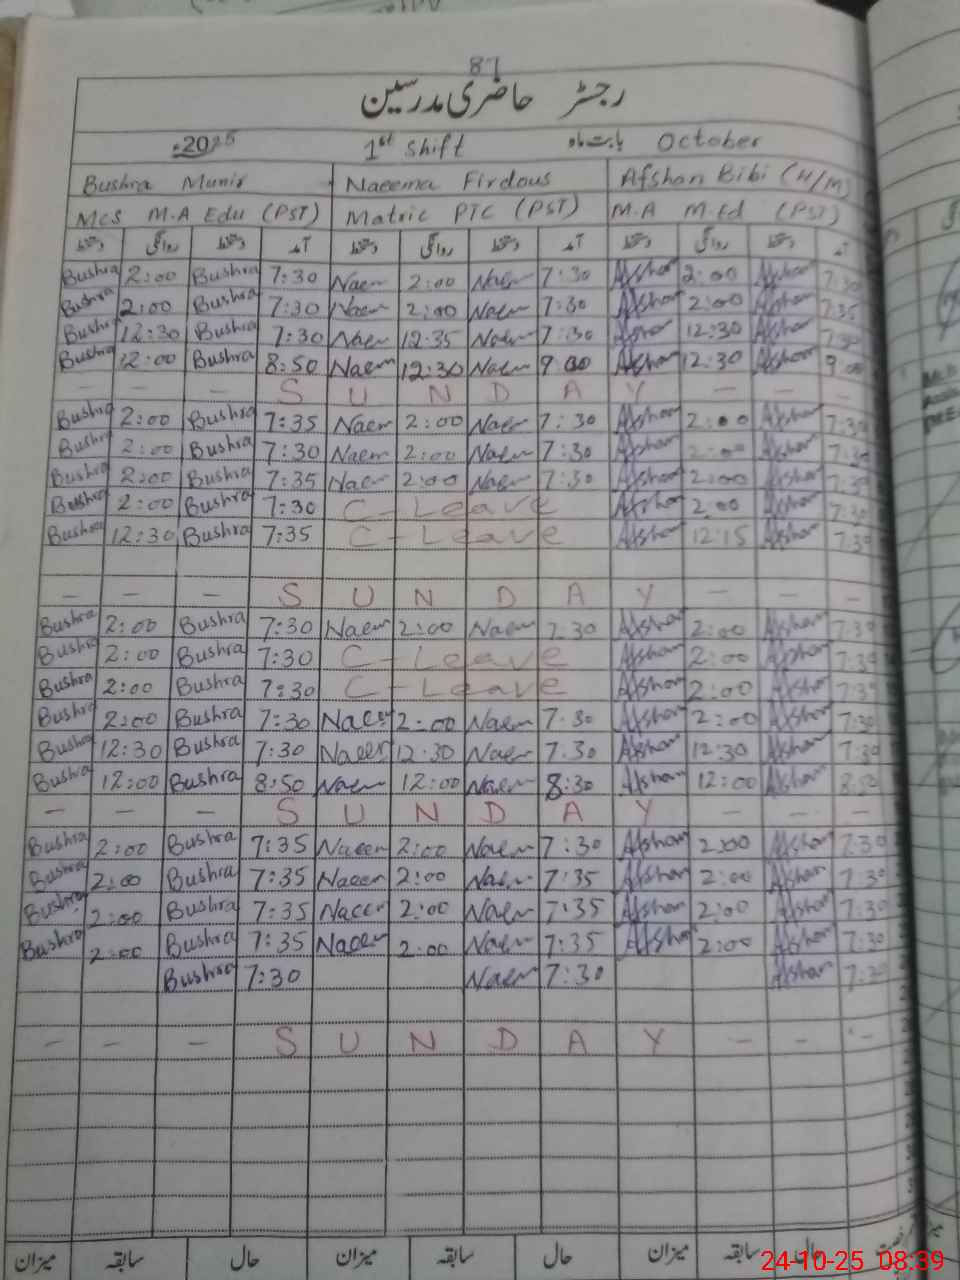 87
رجسٹر حاضری مدرسین
2025ء 1st Shift بابت ماہ October
Bushra Munir Naeema Firdous Afshan Bibi (H/M)
MCS M.A Edu (PST) Matric PTC (PST) M.A M.Ed (PST)
دستخط روانگی دستخط آمد دستخط روانگی دستخط آمد دستخط روانگی دستخط آمد
Bushra 2:00 Bushra 7:30 Naem 2:00 Naem 7:30 Afshan 2:00 Afshan 7:30
Bushra 2:00 Bushra 7:30 Naem 2:00 Naem 7:30 Afshan 2:00 Afshan 7:35
Bushra 12:30 Bushra 7:30 Naem 12:35 Naem 7:30 Afshan 12:30 Afshan 7:30
Bushra 12:00 Bushra 8:50 Naem 12:30 Naem 9:00 Afshan 12:30 Afshan 9:00
- - - S U N D A Y - - -
Bushra 2:00 Bushra 7:35 Naem 2:00 Naem 7:30 Afshan 2:00 Afshan 7:30
Bushra 2:00 Bushra 7:30 Naem 2:00 Naem 7:30 Afshan 2:00 Afshan 7:30
Bushra 2:00 Bushra 7:35 Naem 2:00 Naem 7:30 Afshan 2:00 Afshan 7:30
Bushra 2:00 Bushra 7:30 C-Leave Afshan 2:00 Afshan 7:30
Bushra 12:30 Bushra 7:35 C-Leave Afshan 12:15 Afshan 7:30
- - - S U N D A Y - - -
Bushra 2:00 Bushra 7:30 Naem 2:00 Naem 7:30 Afshan 2:00 Afshan 7:30
Bushra 2:00 Bushra 7:30 C-Leave Afshan 2:00 Afshan 7:30
Bushra 2:00 Bushra 7:30 C-Leave Afshan 2:00 Afshan 7:35
Bushra 2:00 Bushra 7:30 Naeem 2:00 Naem 7:30 Afshan 2:00 Afshan 7:30
Bushra 12:30 Bushra 7:30 Naeem 12:30 Naem 7:30 Afshan 12:30 Afshan 7:30
Bushra 12:00 Bushra 8:50 Naem 12:00 Naem 8:30 Afshan 12:00 Afshan 8:30
- - - S U N D A Y - - -
Bushra 2:00 Bushra 7:35 Naeem 2:00 Naem 7:30 Afshan 2:00 Afshan 7:30
Bushra 2:00 Bushra 7:35 Naeem 2:00 Naem 7:35 Afshan 2:00 Afshan 7:30
Bushra 2:00 Bushra 7:35 Naeem 2:00 Naem 7:35 Afshan 2:00 Afshan 7:30
Bushra 2:00 Bushra 7:35 Naeem 2:00 Naem 7:35 Afshan 2:00 Afshan 7:30
Bushra 7:30 Naem 7:30 Afshan 7:30
- - - S U N D A Y - - -
میزان سابقہ حال میزان سابقہ حال میزان سابقہ حال
24-10-25 08:39